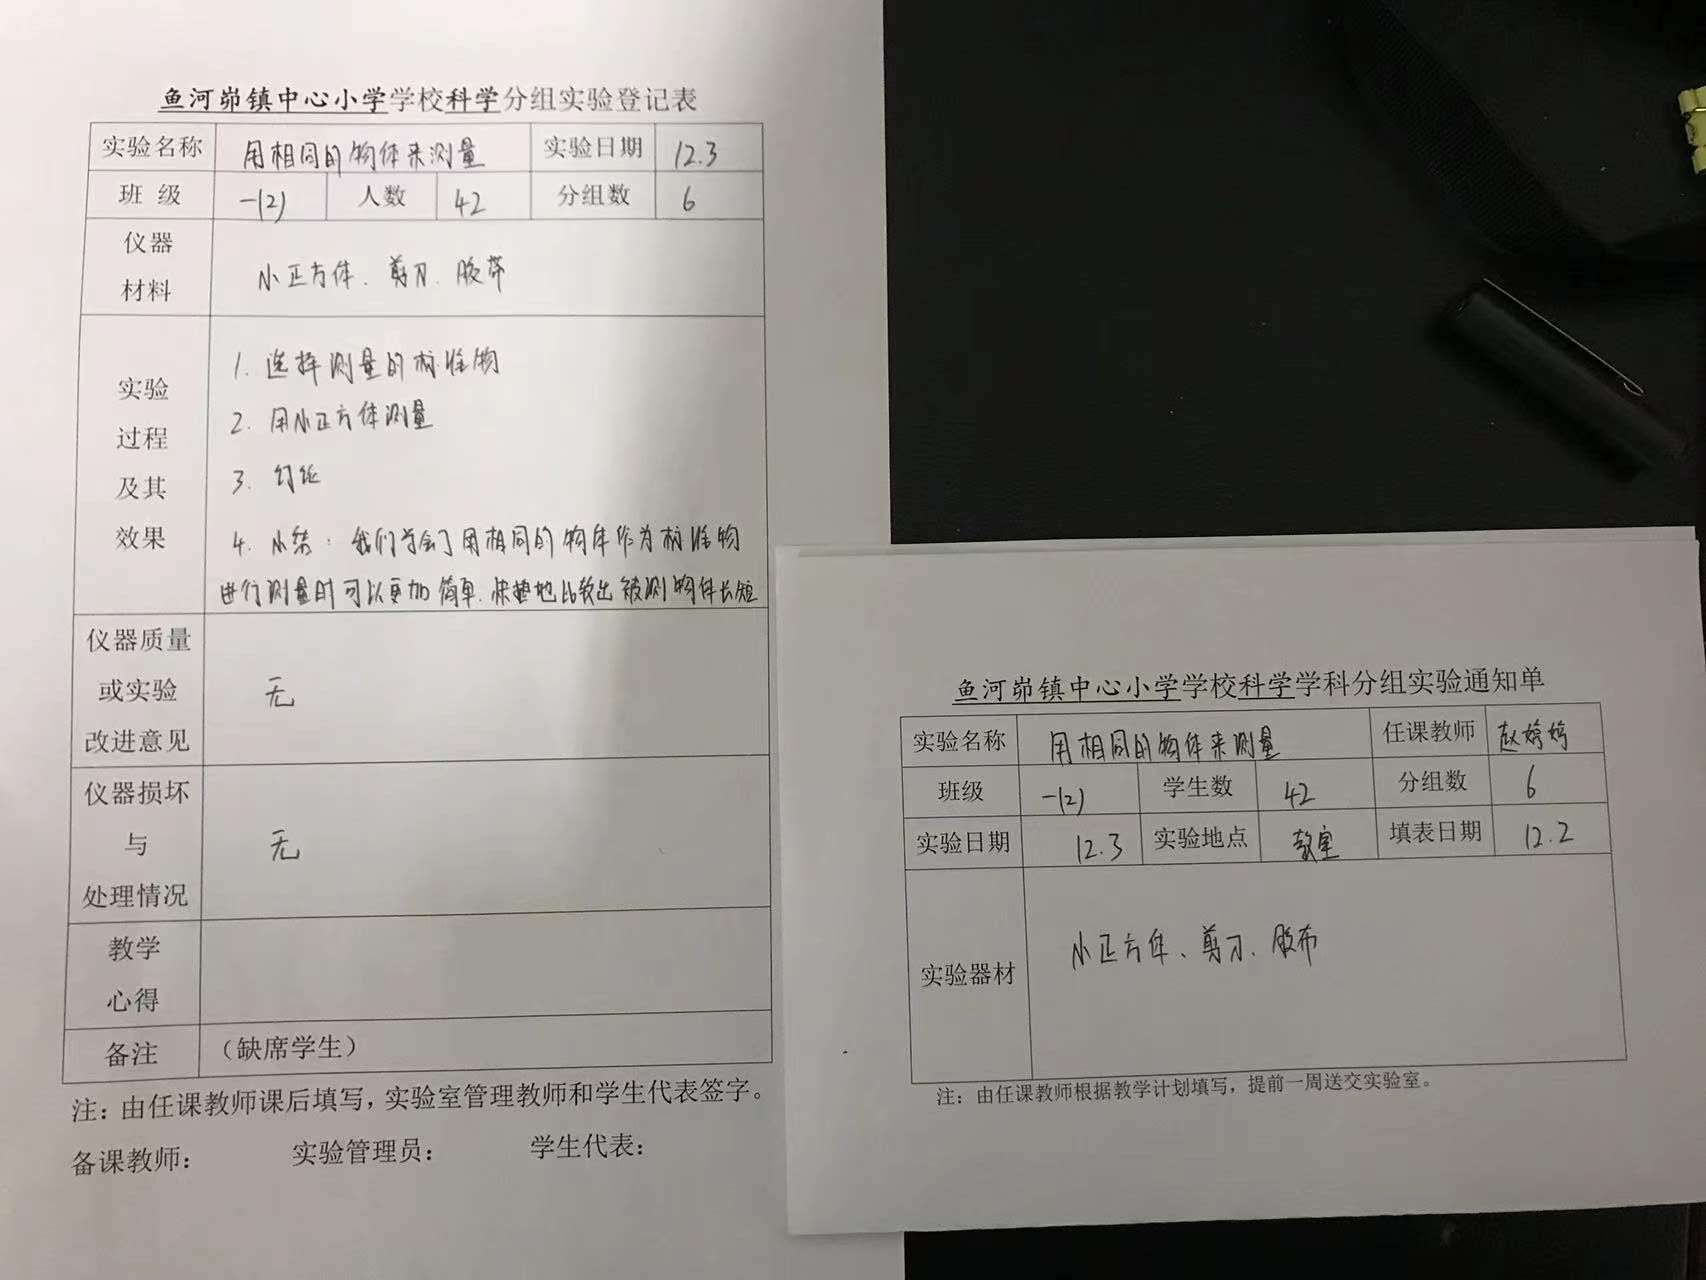 鱼河峁镇中心小学学校科学分组实验登记表
实验名称 用相同的物体来测量 实验日期 12.3
班 级 一(2) 人数 42 分组数 6
仪器
材料
小正方体、剪刀、胶带
实验
过程
及其
效果
1. 选择测量的标准物
2. 用小正方体测量
3. 讨论
4. 小结：我们学会了用相同的物体作为标准物
进行测量时可以更加简单、快捷地比较出被测物体长短
仪器质量
或实验
改进意见
无
仪器损坏
与
处理情况
无
教学
心得
备注 （缺席学生）
注：由任课教师课后填写，实验室管理教师和学生代表签字。
备课教师： 实验管理员： 学生代表：
鱼河峁镇中心小学学校科学学科分组实验通知单
实验名称 用相同的物体来测量 任课教师 赵婷婷
班级 一(2) 学生数 42 分组数 6
实验日期 12.3 实验地点 教室 填表日期 12.2
实验器材 小正方体、剪刀、胶布
注：由任课教师根据教学计划填写，提前一周送交实验室。